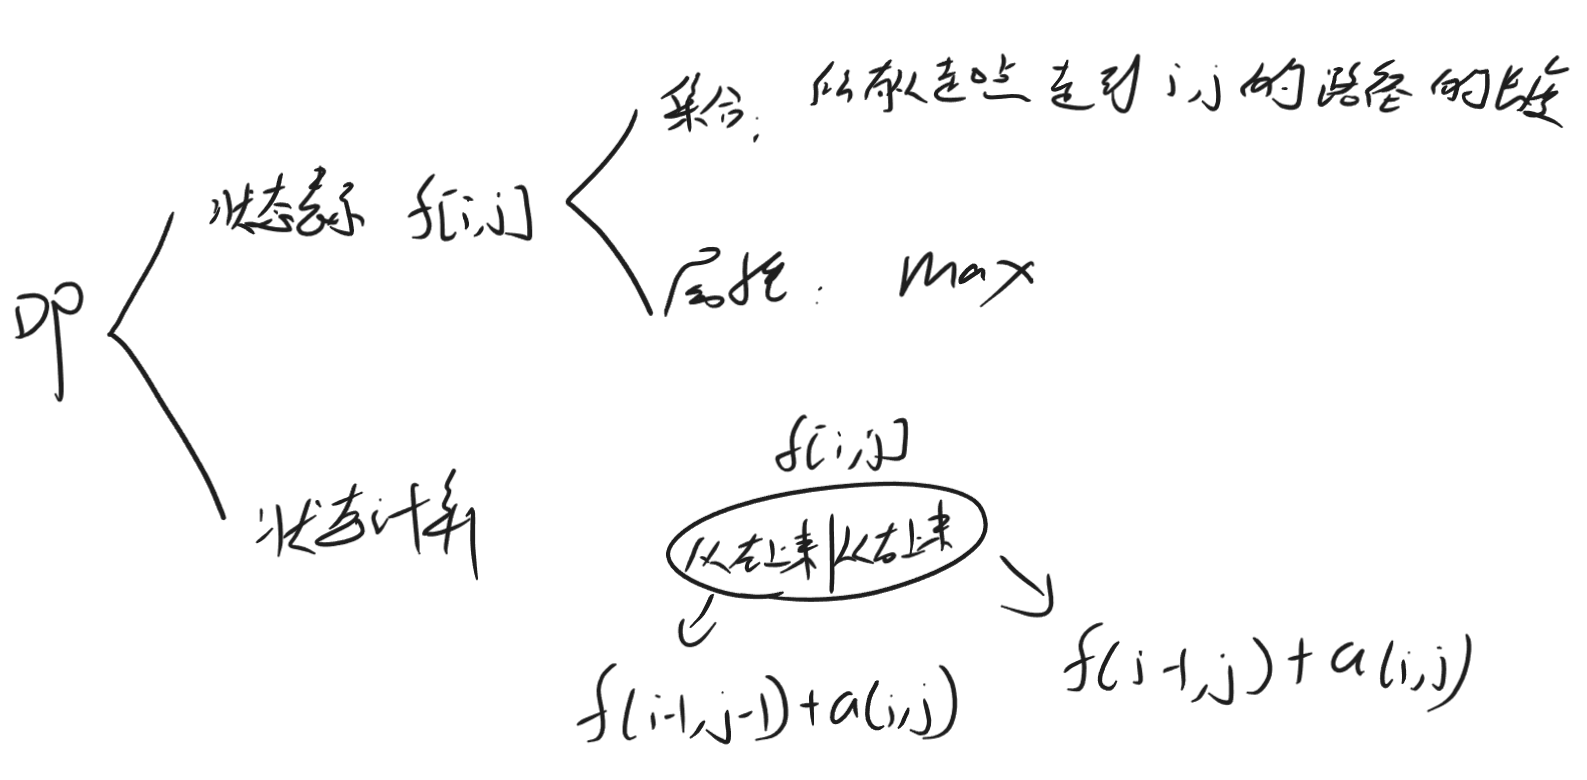 集合: 所有从起点走到 i,j 的路径的长度
状态表示 f[i,j]
属性: max
DP
f[i,j]
状态计算
从左上来|从右上来
f(i-1,j-1)+a(i,j)
f(i-1,j)+a(i,j)